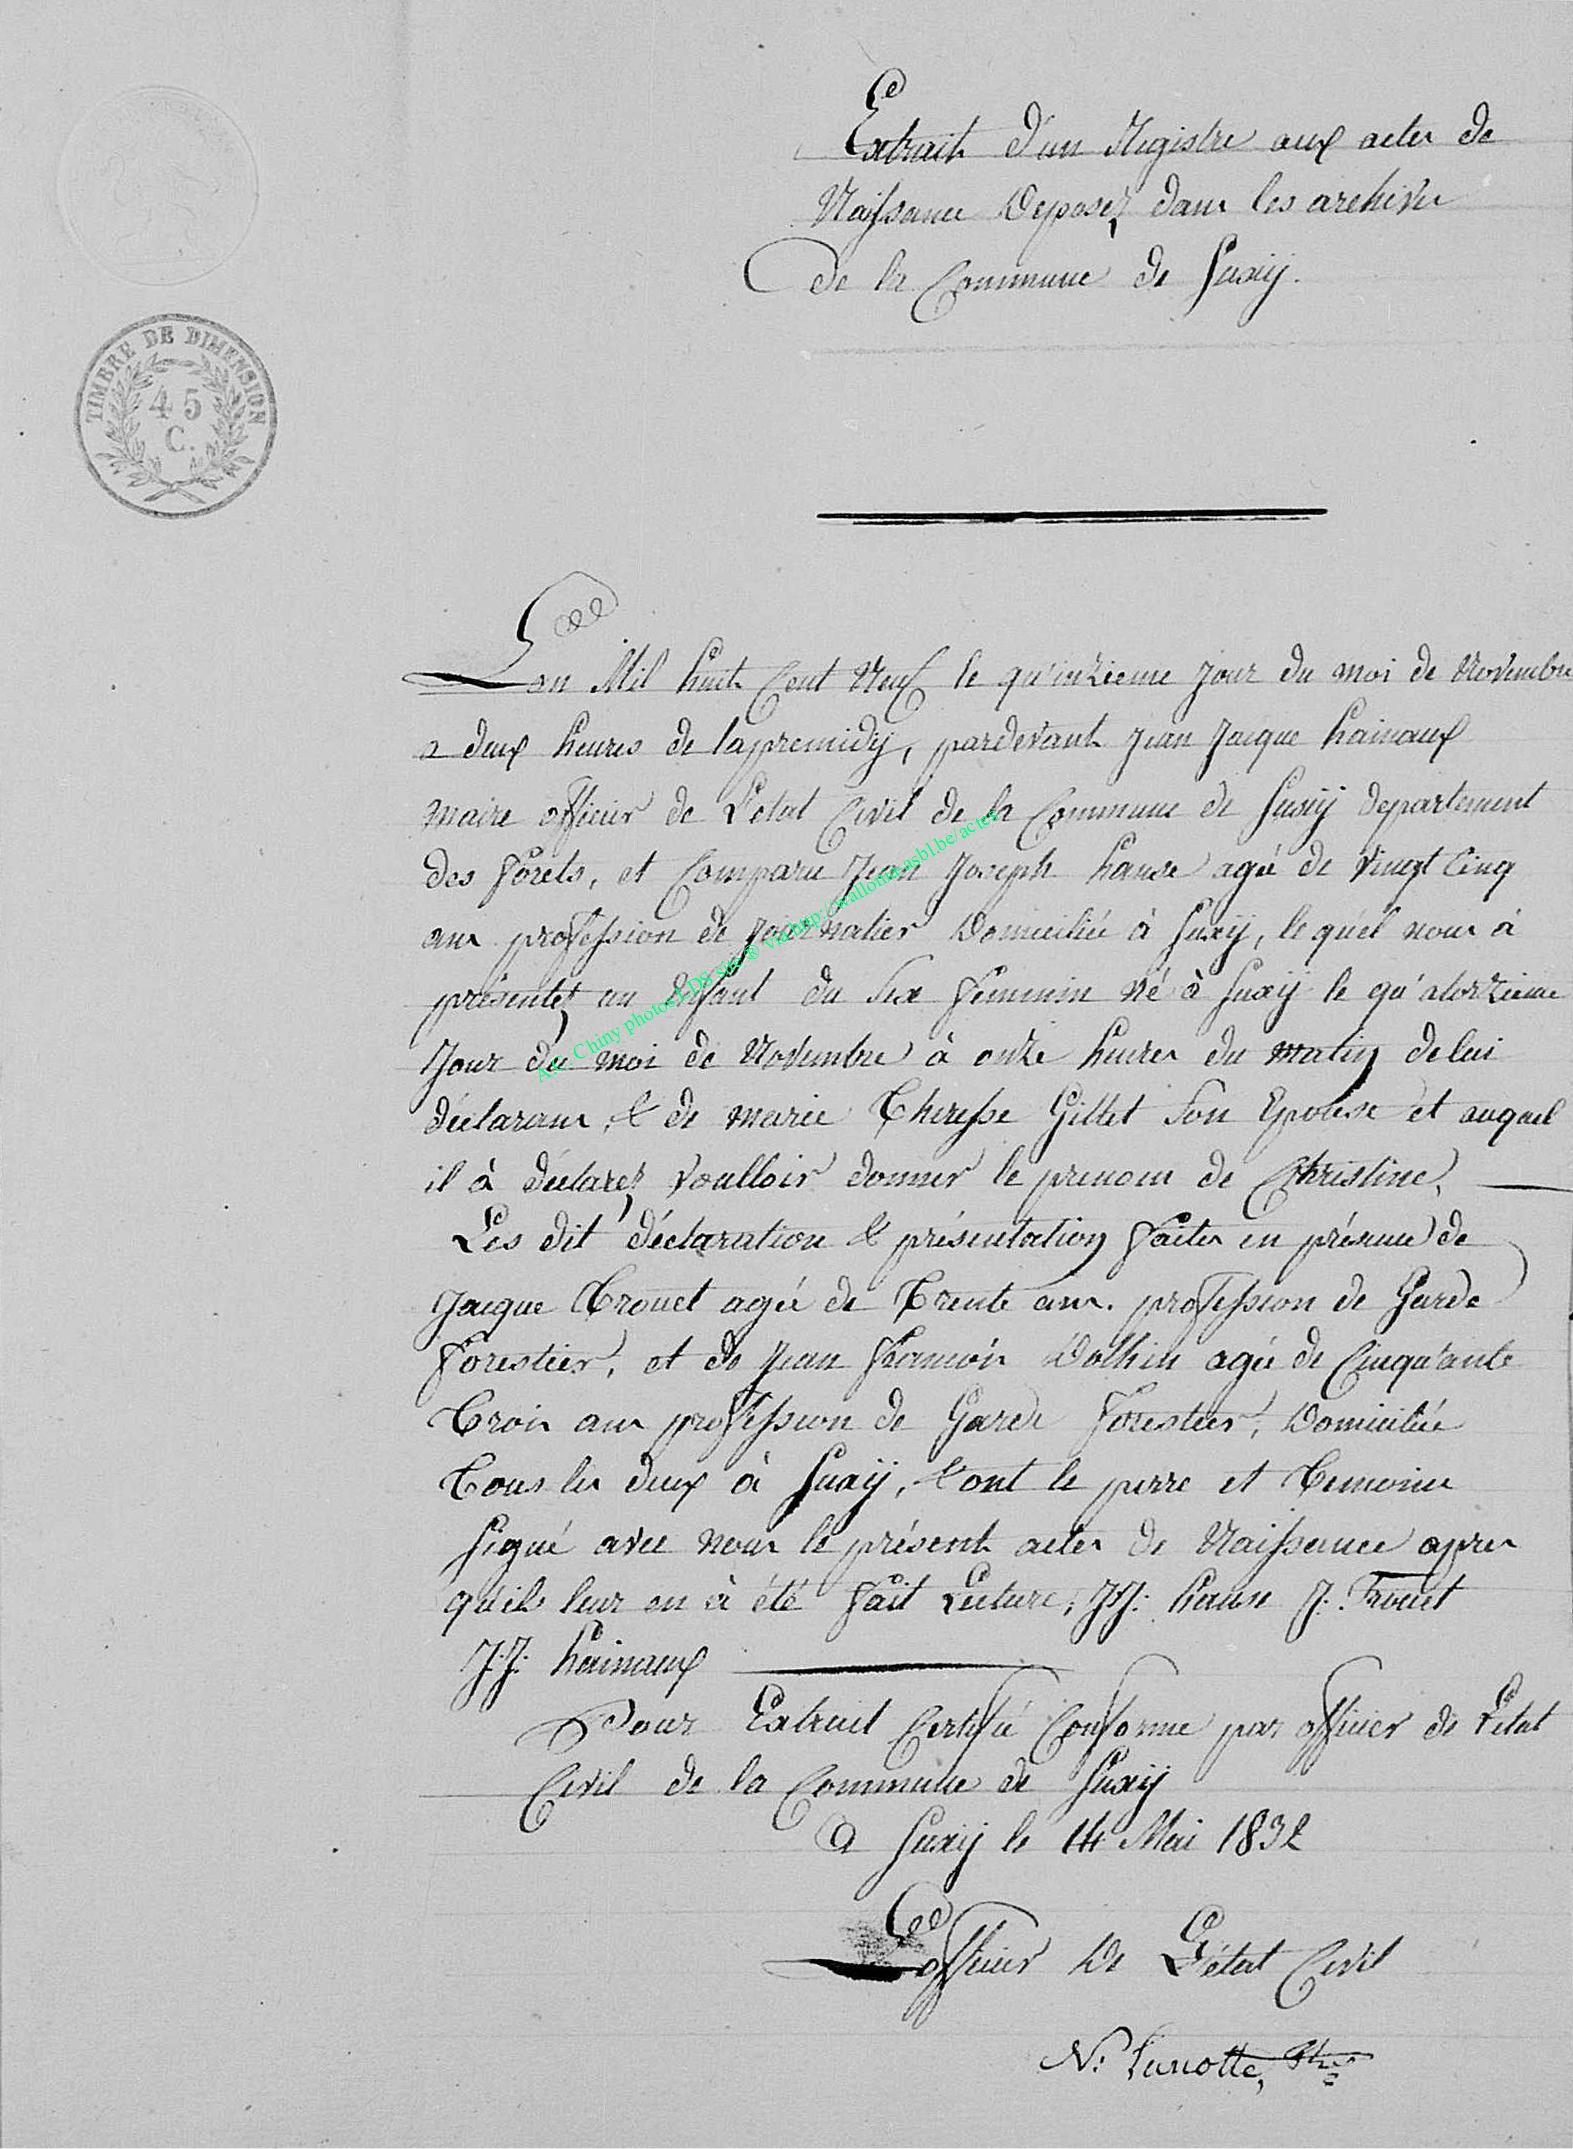 Extrait d'un Registre aux actes de
Naissance Deposéz dans les archives
de la Commune de Suxÿ.
TIMBRE DE DIMENSION
45
C.
Lan Mil huit Cent Neuf le qu'inzieme jour du moi de Novembre
a deux heures de lapremidÿ, pardevant jean jacque hainaux
maire officier de L'etat Civil de la Commune de Suxÿ departement
des forets, et Comparu jean joseph hanse agée de vingt Cinq
ans profession de journalier Domiciliée à Suxÿ, le quél nous à
présentéz un Enfant du Sex féminin né à Suxÿ le qu'atorzieme
jour du moi de Novembre à onze heures du matin de lui
déclarans, & de marie Theresse Gillet Son Epouse et auquel
il à déclaréz voulloir donner le prenom de Christine,
Les dit déclaration & présentation faites en présence de
jacque Trouet agée de Trente ans. profession de Garde
forestier, et de jean françois Dothin agée de Cinqu'ante
Trois ans profession de Garde forestier, Domiciliée
Tous les deux à Suxÿ, & ont le perre et Temoins
Signé avec nous le présent actes de Naissance apres
quil leur en à été fait Lecture, J.J: hanse J: Trouet
J:J: hainaux
Pour Extrait Certifié Conforme par officier de L'etat
Civil de la Commune de Suxÿ
a Suxÿ le 14 Mai 1832
L'officier De L'état Civil
N: Lanotte,
Arc. Chiny photos LDS site ® via http://wallonia-asbl.be/actes